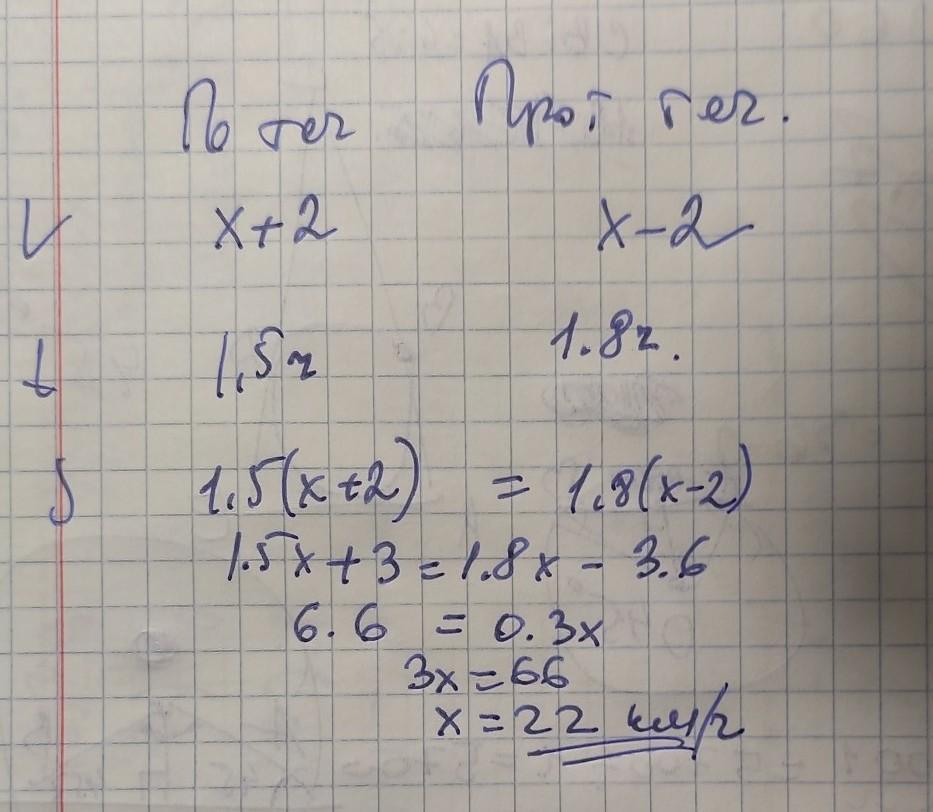 По теч Прот теч.
V x+2 x-2
t 1,5ч 1.8ч.
S 1.5(x+2) = 1,8(x-2)
1.5x+3=1.8x-3.6
6.6 = 0.3x
3x=66
x=22 км/ч